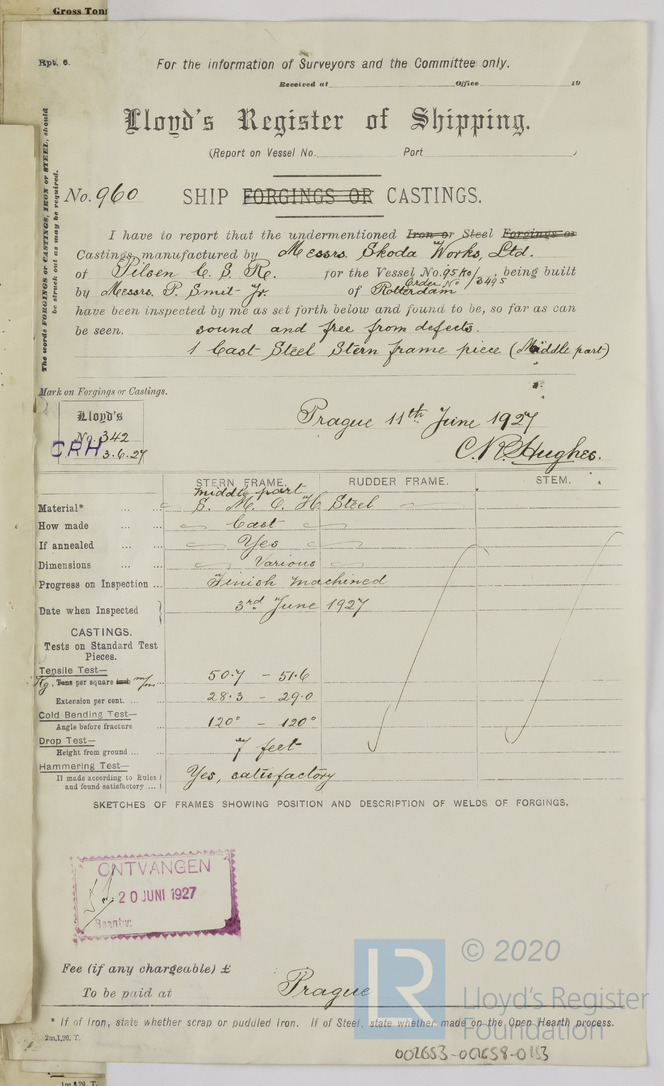 Gross Ton
Rpt. 6.
For the information of Surveyors and the Committee only.
Received at Office 19
Lloyd's Register of Shipping.
(Report on Vessel No. Port )
The words FORGINGS or CASTINGS, IRON or STEEL, should
be struck out as may be required.
No. 960 SHIP FORGINGS OR CASTINGS.
I have to report that the undermentioned Iron or Steel Forgings or
Castings, manufactured by Messrs. Skoda Works, Ltd.
of Pilsen C. S. R. for the Vessel No. being built
Order No /3495
by Messrs. P. Smit Jr. of Rotterdam
have been inspected by me as set forth below and found to be, so far as can
be seen, sound and free from defects.
1 Cast Steel Stern frame piece (Middle part)
Mark on Forgings or Castings.
Lloyd's
No. 342
CRH 3.6.27
Prague 11th June 1927
C. R. Hughes.
STERN FRAME. RUDDER FRAME. STEM.
middle part
Material* ... ... S. M. O. H. Steel
How made ... ... Cast
If annealed ... ... Yes
Dimensions ... ... Various
Progress on Inspection ... Finish machined
Date when Inspected 3rd June 1927
CASTINGS.
Tests on Standard Test
Pieces.
Tensile Test—
Kg. Tons per square inch m/m ... 50.7 - 51.6
Extension per cent. ... ... 28.3 - 29.0
Cold Bending Test—
Angle before fracture 120° - 120°
Drop Test—
Height from ground ... ... 7 feet
Hammering Test—
If made according to Rules
and found satisfactory ... Yes, satisfactory
SKETCHES OF FRAMES SHOWING POSITION AND DESCRIPTION OF WELDS OF FORGINGS.
ONTVANGEN
20 JUNI 1927
Beantw:
Fee (if any chargeable) £
To be paid at Prague
* If of Iron, state whether scrap or puddled Iron. If of Steel, state whether made on the Open Hearth process.
2m,1,26. T.
LR
© 2020
Lloyd's Register
Foundation
002653-002658-0153
1m,4,26. T.